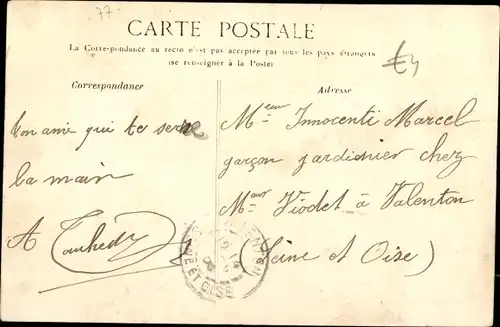 77
CARTE POSTALE
La Correspondance au recto n'est pas acceptée par tous les pays étrangers
(se renseigner à la Poste)
€4
Correspondance
Adresse
ton ami qui te serre
la main
A
Meur Innocenti Marcel
garçon jardinier chez
Meur Viodet à Valenton
(Seine et Oise)
VALENTON
SEINE ET OISE